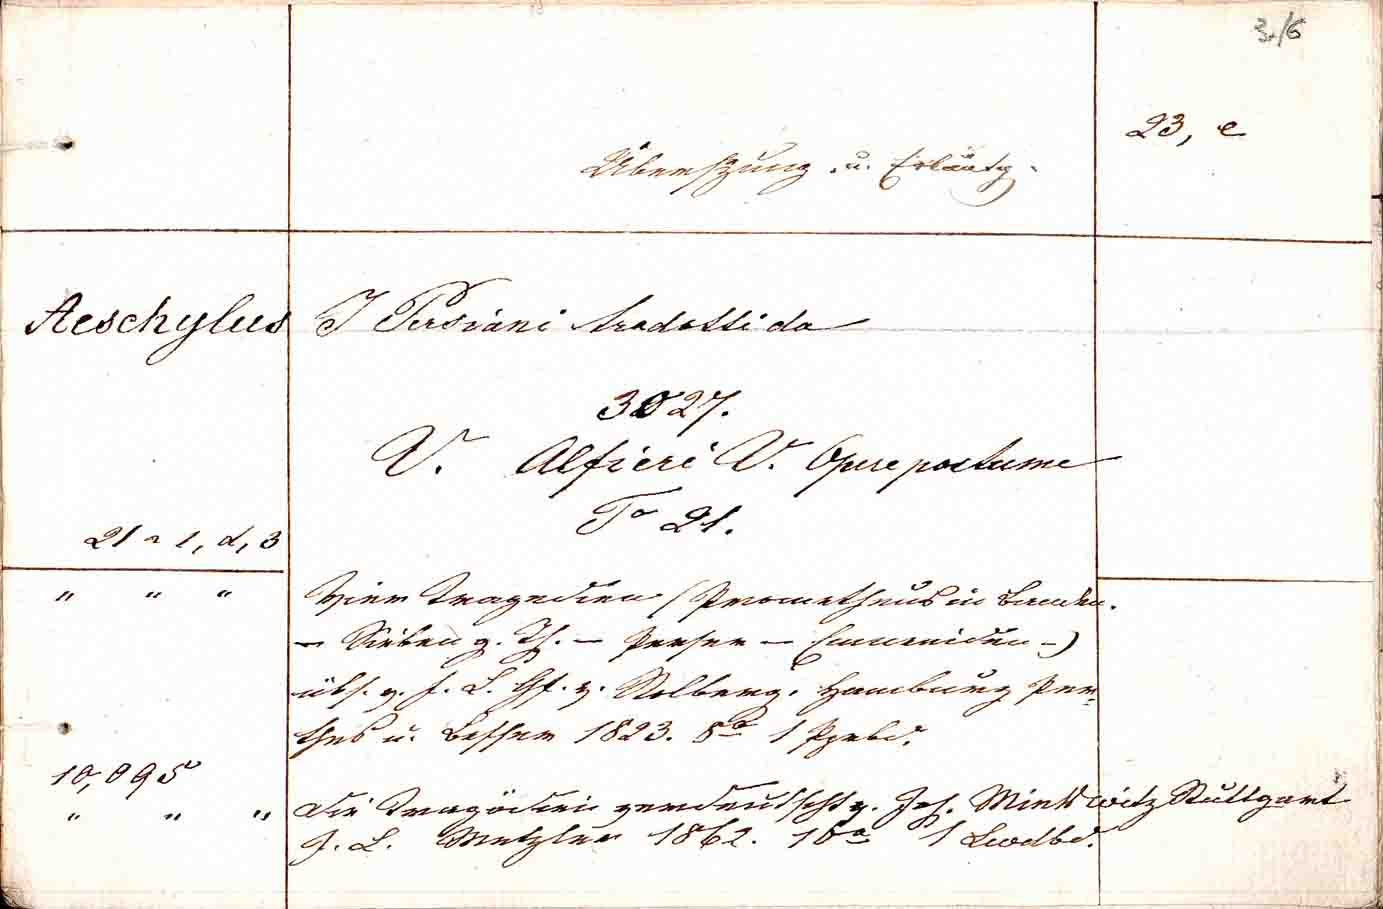 3/6
23, e
Übersetzung u. Erläutg.
Aeschylus I Persiani tradotti da
3027.
V. Alfieri V. Opere postume
To 21.
21 1, d, 3
" " " Vier Tragedien (Prometheus in Banden.
— Sieben g. Th. — Perser — Eumeniden —)
übs. v. F. L. Gf. v. Stolberg. Hamburg Per-
thes u. Besser 1823. 8o 1 Ppbd.
10,095
" " " Die Tragödien verdeutscht v. Joh. Minkwitz Stuttgart
J. B. Metzler 1862. 16o 1 Lwdbd.